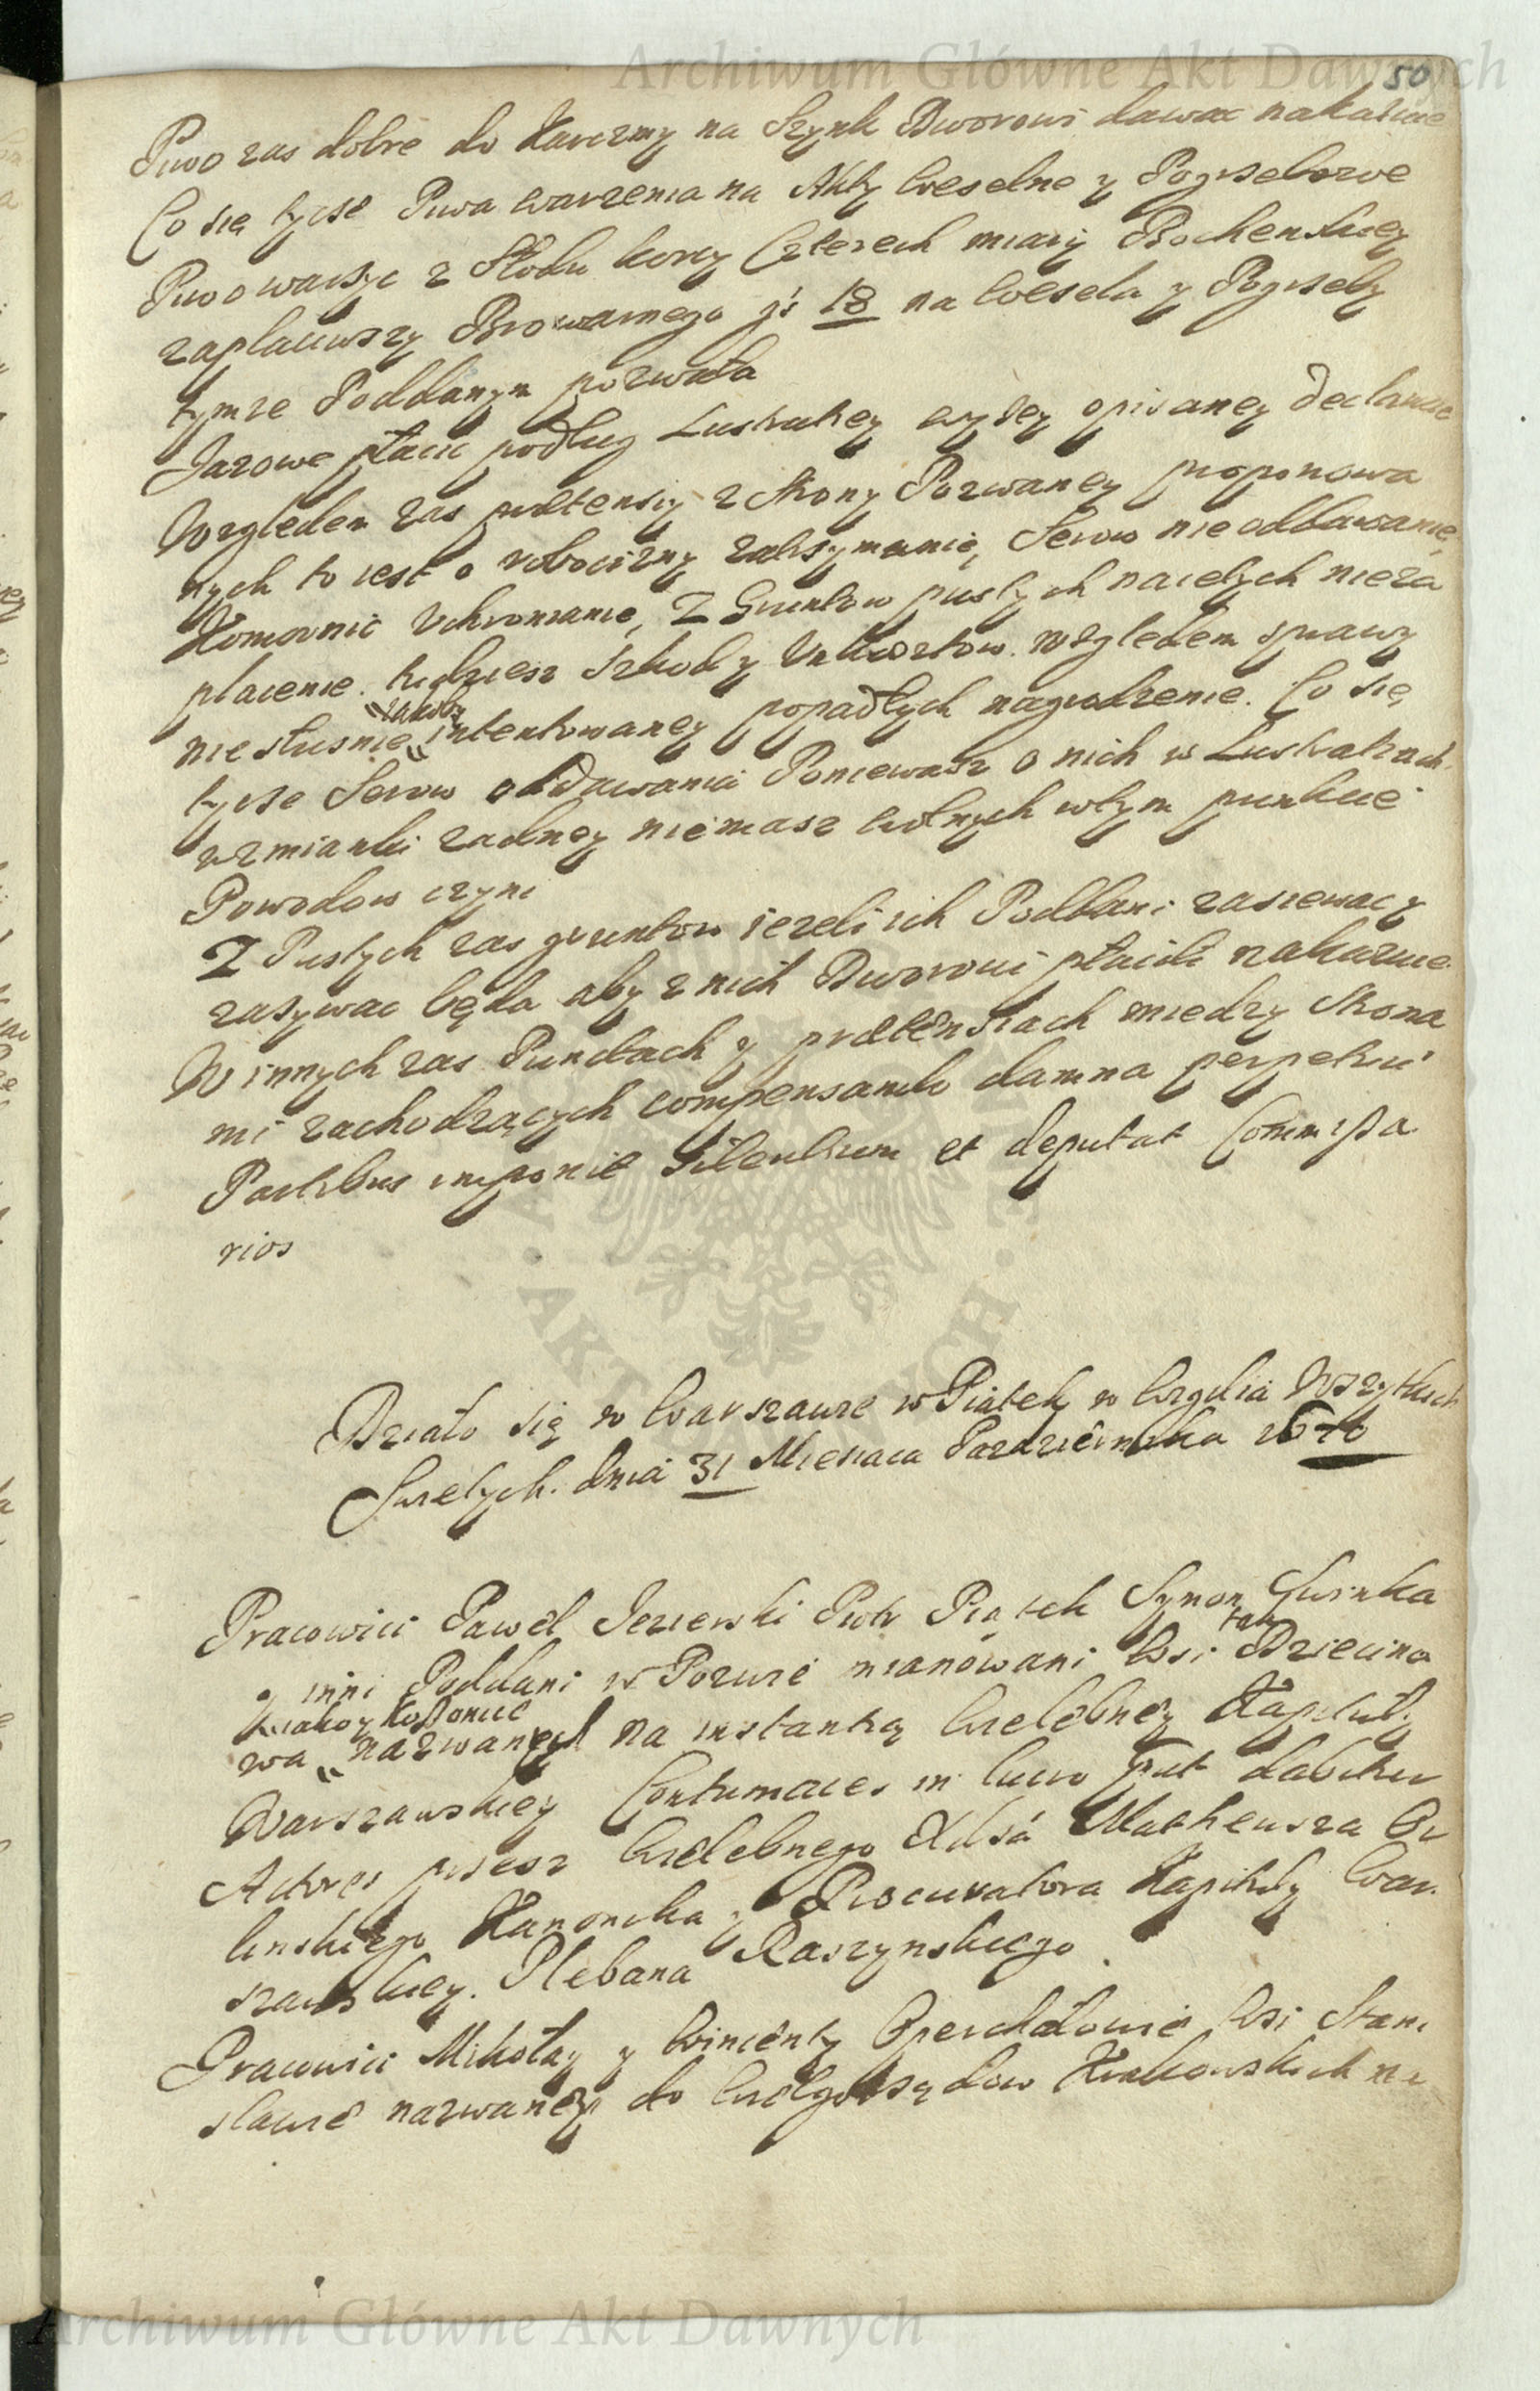 Archiwum Główne Akt Dawnych
50
Piwo zas dobre do Karczmy na Szynk Dworowi dawac nakazuie
Co się tycse Piwa warzenia na Akty weselne y Pogrzebowe
Piwo warzyc z Słodu korcy Czterech miary Bochenskiey
zapłaciwszy Browarnego gr 18 na Wesela y Pogrzeby
tymze Poddanym pozwala
Jazowe płacic podług Lustratiey wyzey opisaney declaruie
Względem zas praetensiy z strony Pozwaney proponowa
nych to iest o robocizny zatrzymanie, Serow nie oddawanie,
Komornic Uchronianie, Z Gruntow pustych naiętych nieza
płacenie. tudziesz Szkod y Unkosztow względem sprawy
niesłusnie „iakoby„ intentowaney popadłych nagrodzenie. Co się
tycse Serow oddawania Poniewasz o nich w Lustratiach
wzmianki zadney niemasz wolnych wtym punkcie
Powodow czyni
Z Pustych zas gruntow iezeli ich Poddani zasiewac y
zazywac będą aby z nich Dworowi płacili nakazuie
W innych zas Punctach y praetensiach miedzy Strona
mi zachodzących compensando damna perpetui
Partibus imponit silentium et deputat Commissa
rios
Działo się w Warszawie w Piątek w Wigilią Wszytkich
Swietych. dnia 31 Miesiaca Pazdziernika
Pracowici Paweł Jezierski Piotr Piątek Symon Swinka
y inni Poddani w Pozwie mianowani Wsi tak Dziecino
wa „ iako y Kossonice nazwanych na instantią Wielebney Kapituły
Warszawskiey Contumaces in lucro prout dabitur
Actores przesz Wielebnego Xdsa Matheusza
linskiego Kanonika y Procuratora Kapituły War
szawskiey. Plebana Raszynskiego.
Pracowici Mikołay y Wincenty Wsi Stani
sławie nazwaney do Ksiąg Sądow Krakowskich na
Archiwum Główne Akt Dawnych